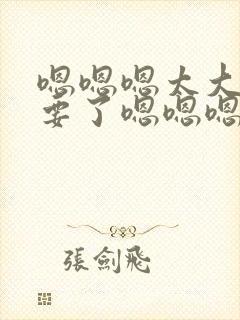 嗯嗯嗯太大
要了嗯嗯嗯
張劍飛